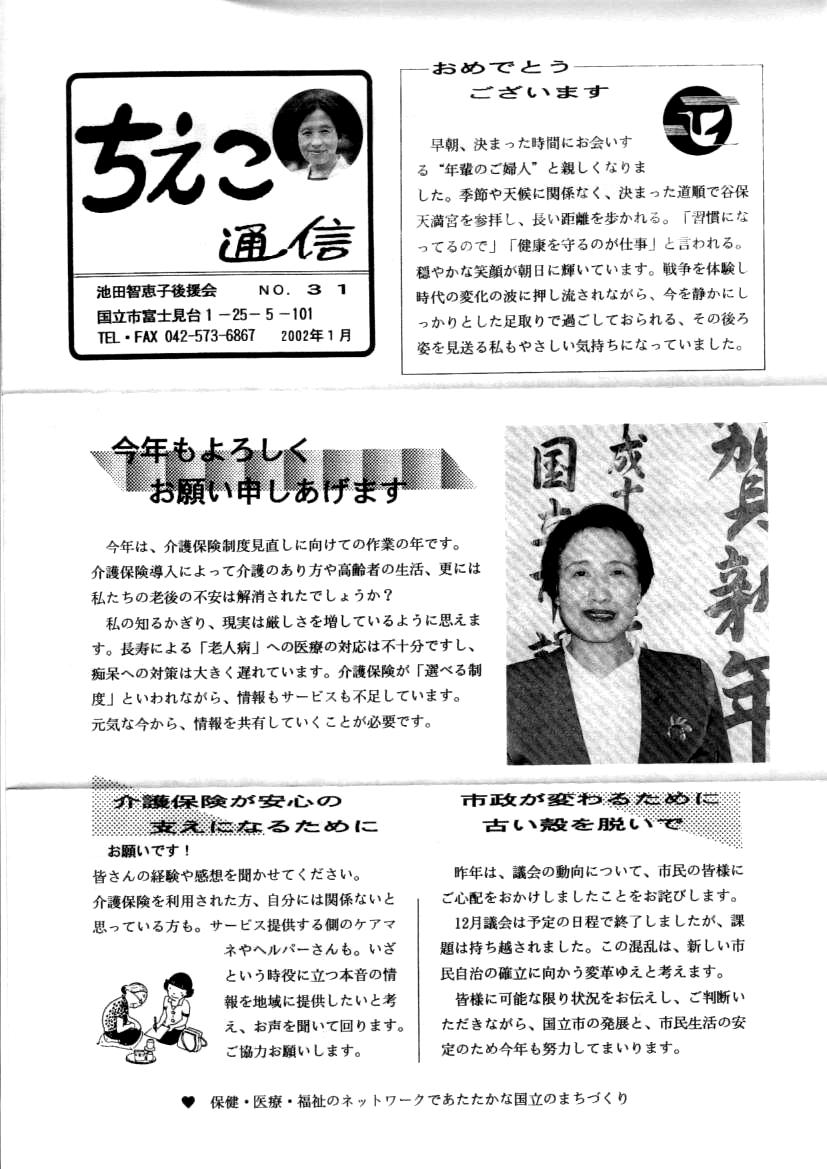 ちえこ
通信
池田智恵子後援会 NO. 31
国立市富士見台1-25-5-101
TEL・FAX 042-573-6867 2002年1月
おめでとう
ございます
早朝、決まった時間にお会いす
る“年輩のご婦人”と親しくなりま
した。季節や天候に関係なく、決まった道順で谷保
天満宮を参拝し、長い距離を歩かれる。「習慣にな
ってるので」「健康を守るのが仕事」と言われる。
穏やかな笑顔が朝日に輝いています。戦争を体験し
時代の変化の波に押し流されながら、今を静かにし
っかりとした足取りで過ごしておられる、その後ろ
姿を見送る私もやさしい気持ちになっていました。
今年もよろしく
お願い申しあげます
今年は、介護保険制度見直しに向けての作業の年です。
介護保険導入によって介護のあり方や高齢者の生活、更には
私たちの老後の不安は解消されたでしょうか?
私の知るかぎり、現実は厳しさを増しているように思えま
す。長寿による「老人病」への医療の対応は不十分ですし、
痴呆への対策は大きく遅れています。介護保険が「選べる制
度」といわれながら、情報もサービスも不足しています。
元気な今から、情報を共有していくことが必要です。
賀新年
成十
国立市
介護保険が安心の
支えになるために
お願いです!
皆さんの経験や感想を聞かせてください。
介護保険を利用された方、自分には関係ないと
思っている方も。サービス提供する側のケアマ
ネやヘルパーさんも。いざ
という時役に立つ本音の情
報を地域に提供したいと考
え、お声を聞いて回ります。
ご協力お願いします。
市政が変わるために
古い殻を脱いで
昨年は、議会の動向について、市民の皆様に
ご心配をおかけしましたことをお詫びします。
12月議会は予定の日程で終了しましたが、課
題は持ち越されました。この混乱は、新しい市
民自治の確立に向かう変革ゆえと考えます。
皆様に可能な限り状況をお伝えし、ご判断い
ただきながら、国立市の発展と、市民生活の安
定のため今年も努力してまいります。
♥ 保健・医療・福祉のネットワークであたたかな国立のまちづくり